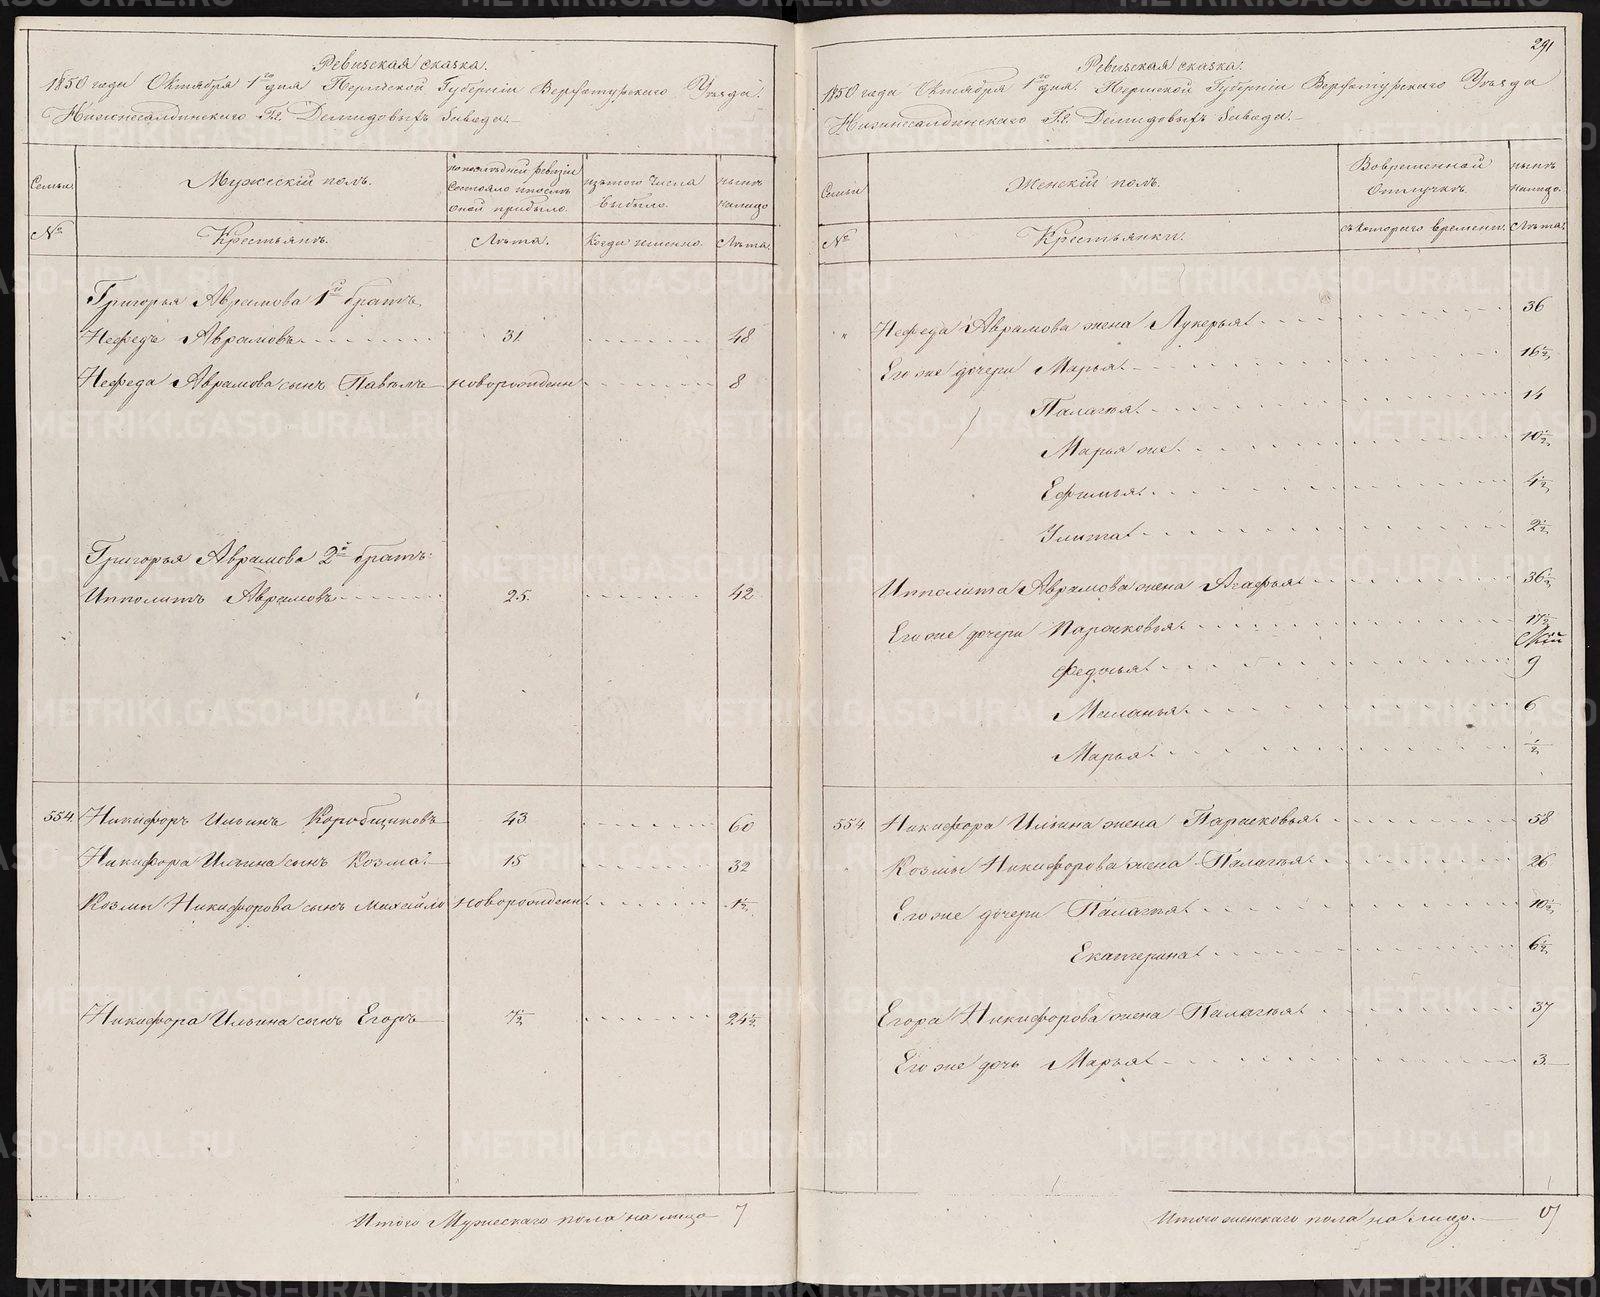 Ревизская сказка.
1850 года Октября 1го дня Пермской Губернiи Верхотурскаго Уѣзда.
Нижнесалдинскаго Г.г. Демидовыхъ Завода.
Семьи.
Мужескiй полъ.
по последней ревизiи состояло и после оной прибыло.
изъ того числа выбыло.
нынѣ налицо
№
Крестьянъ.
Лѣта.
Когда именно.
Лѣта.
Григорья Аврамова 1й братъ
Нефедъ Аврамовъ 31 48
Нефеда Аврамова сынъ Павелъ новорожденъ 8
Григорья Аврамова 2й братъ
Ипполитъ Аврамовъ 25. 42
554 Никифоръ Ильинъ Коробщиковъ 43 60
Никифора Ильина сынъ Козма 15 32
Козмы Никифорова сынъ Михайло новорожденъ 1½
Никифора Ильина сынъ Егоръ 7½ 24½
Итого Мужескаго пола на лицо 7
291
Ревизская сказка.
1850 года Октября 1го дня. Пермской Губернiи Верхотурскаго Уѣзда
Нижнесалдинскаго Г.г. Демидовыхъ Завода.
Семьи
Женскiй полъ.
Во временной отлучкѣ.
нынѣ налицо.
№
Крестьянки.
съ котораго времени.
Лѣта.
" Нефеда Аврамова жена Лукерья 36
Его же дочери Марья 16½
Палагья 14
Марья же 10½
Ефимья 4½
Улита 2½
Ипполита Аврамова жена Агафья 36½
Его же дочери Парасковья 17½
Федосья 9
Маланья 6
Марья ½
554. Никифора Ильина жена Парасковья 58
Козмы Никифорова жена Палагья 26
Его же дочери Палагья 10½
Екатерина 6½
Егора Никифорова жена Палагья 37
Его же дочь Марья 3
Итого женскаго пола на лицо.
METRIKI.GASO-URAL.RU